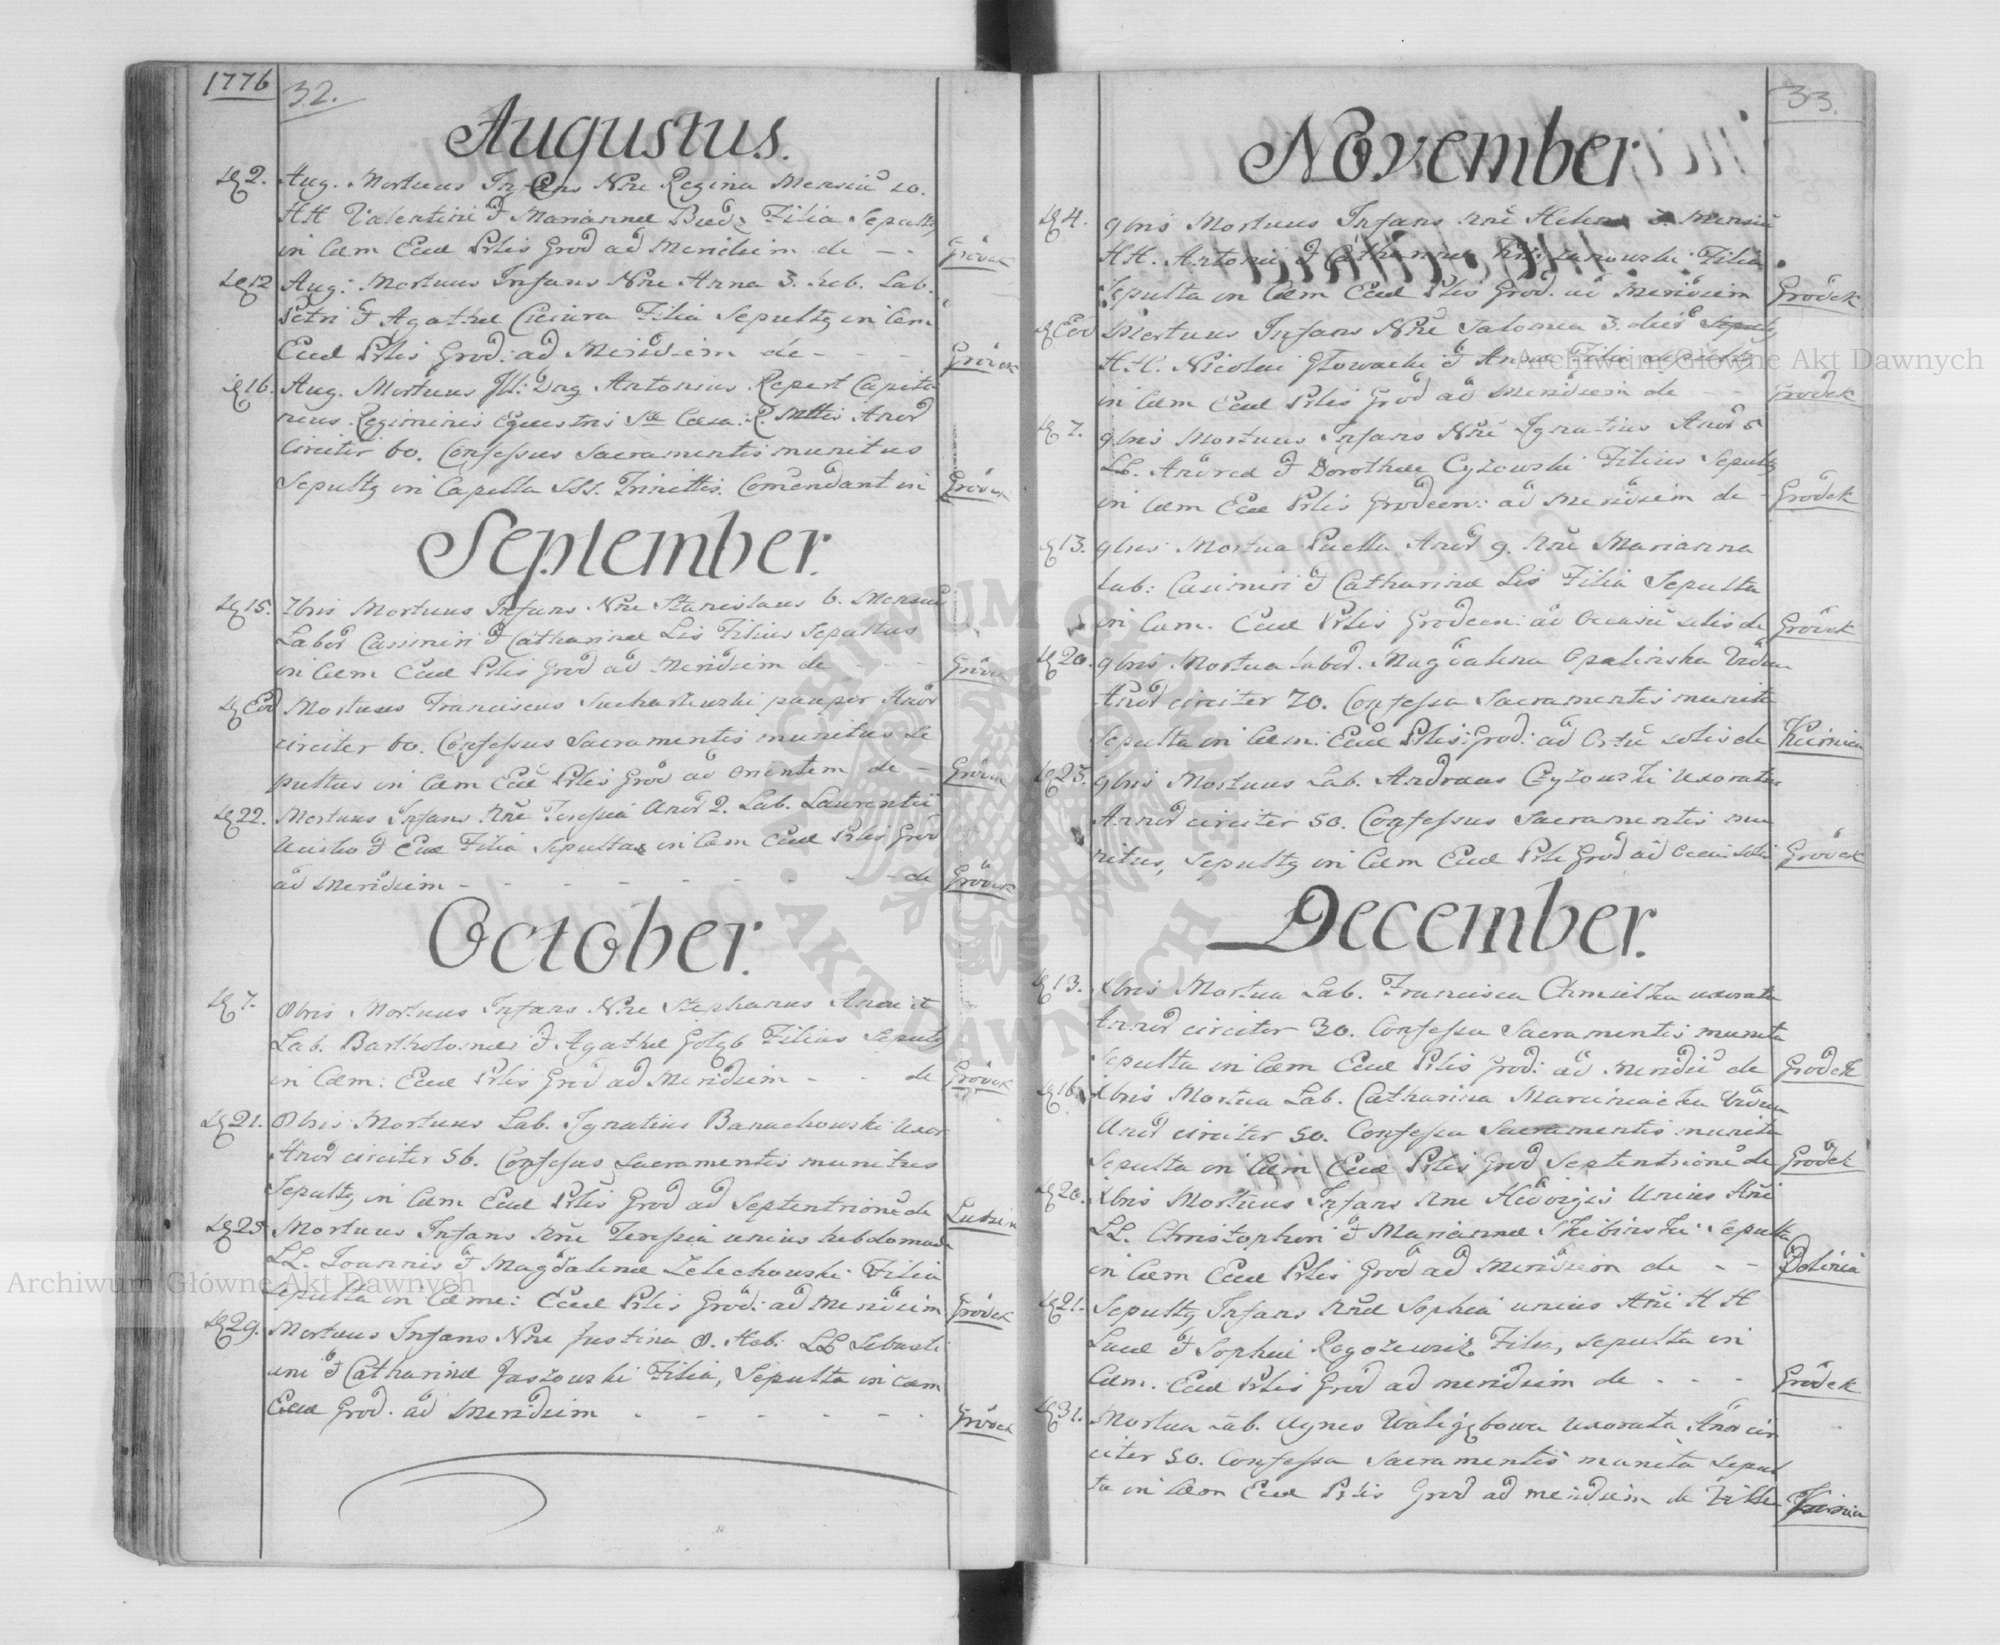 1776
32.
Augustus.
2. Aug. Mortuus Infans Nne Regina Mensiu 10.
HH Valentini & Mariannæ Filia Sepulta
in Cæm Eccl Prlis Grod ad Meridiem de - - Grodek
12 Aug: Mortuus Infans Nne Anna 3. heb. Lab.
Petri & Agathæ Filia Sepulta in Cæm
Eccl Prlis Grod: ad Meridiem de - - - Grodek
16. Aug. Mortuus Ill: Dnq Antonius Repert Capita
neus Regiminis Equestris Anor
circiter 60. Confessus Sacramentis munitus
Sepultq in Capella SSS. Trinittis. Comendant in Grodek
September.
15. 7bris Mortuus Infans Nne Stanislaus 6. Mensiu
Labor Casimiri & Catharinæ Lis Filius Sepultus
in Cæm Eccl Prlis Grod ad Meridiem de - - - Grodek
Eod Mortuus Franciscus pauper Anor
circiter 60. Confessus Sacramentis munitus Se
pultus in Cæm Eccl Prlis Grod ad Orientem de - Grodek
22. Mortuus Infans Nne Teresia Anor 2. Lab. Laurentii
& Evæ Filia Sepulta in Cæm Eccl Prlis Grod
ad Meridiem - - - - - - - - de Grodek
October.
7. 8bris Mortuus Infans Nne Stephanus
Lab. Bartholomei & Agathæ Goląb Filius Sepultq
in Cæm: Eccl Prlis Grod ad Meridiem - - de Grodek
21. 8bris Mortuus Lab. Ignatius Banachowski Uxor
Anor circiter 56. Confessus Sacramentis munitus
Sepultq in Cæm Eccl Prlis Grod ad Septentrione de
25 Mortuus Infans Nne Teresia unius hebdomada
LL. Joannis & Magdalenæ Zelechowski Filia
Sepulta in Cæme: Eccl Prlis Grod: ad Meridiem Grodek
29. Mortuus Infans Nne Justina 8. Heb: LL Sebasti
ani & Catharinæ Jaszowski Filia, Sepulta in Cæm
Eccl Grod. ad Meridiem - - - - - - Grodek
33.
November
4. 9bris Mortuus Infans Nne Helena 3. Mensiu
HH. Antonii & Catharinæ Filia
Sepulta in Cæm Eccl Prlis Grod. ad Meridiem Grodek
Eod Mortuus Infans Nne Salomea 3. dies Sepulta
H.H. Nicolai Głowacki & Annæ Filia
in Cæm Eccl Prlis Grod ad Meridiem de - - Grodek
7. 9bris Mortuus Infans Nne Ignatius Anor 5
LL. Andreæ & Dorotheæ Cyżowski Filius Sepultq
in Cæm Eccl Prlis Grodecen: ad Meridiem de - Grodek
13. 9bris Mortua Puella Anor 9. Nne Marianna
Lab: Casimiri & Catharinæ Lis Filia Sepulta
in Cæm. Eccl Prlis Grodecen: ad Occasu solis de Grodek
20. 9bris Mortua Labor. Magdalena Opalinska Vidua
Anor circiter 70. Confessa Sacramentis munita
Sepulta in Cæm: Eccl Prlis: Grod: ad Ortu solis de
25. 9bris Mortuus Lab. Andreas Cyżowski uxoratus
Annor circiter 50. Confessus Sacramentis mu
nitus, Sepultq in Cæm Eccl Prlis Grod ad Occa: solis Grodek
December.
13. Xbris Mortua Lab. Francisca Chmielka uxorata
Annor circiter 30. Confessa Sacramentis munita
Sepulta in Cæm Eccl Prlis Grod: ad Meridiē de Grodek
16. Xbris Mortua Lab. Catharina Marciniacka Vidua
Anor circiter 50. Confessa Sacramentis munita
Sepulta in Cæm Eccl Prlis Grod Septentrione de Grodek
20. Xbris Mortuus Infans Nne Hedvigis Unius Ani
LL. Christophori & Mariannæ Skibinski Sepulta
in Cæm Eccl Prlis Grod ad Meridiem de - - Dolinia
21. Sepultq Infans Nne Sophia unius Ani HH
& Sophiæ Filia, Sepulta in
Cæm. Eccl Prlis Grod ad meridiem de - - - Grodek
31. Mortua Lab. Agnes uxorata Anor cir
citer 50. Confessa Sacramentis munita Sepul
ta in Cæm Eccl Prlis Grod ad meridiem de Villa
Archiwum Główne Akt Dawnych
Archiwum Główne Akt Dawnych
ARCHIWUM GŁÓWNE · AKT DAWNYCH ·